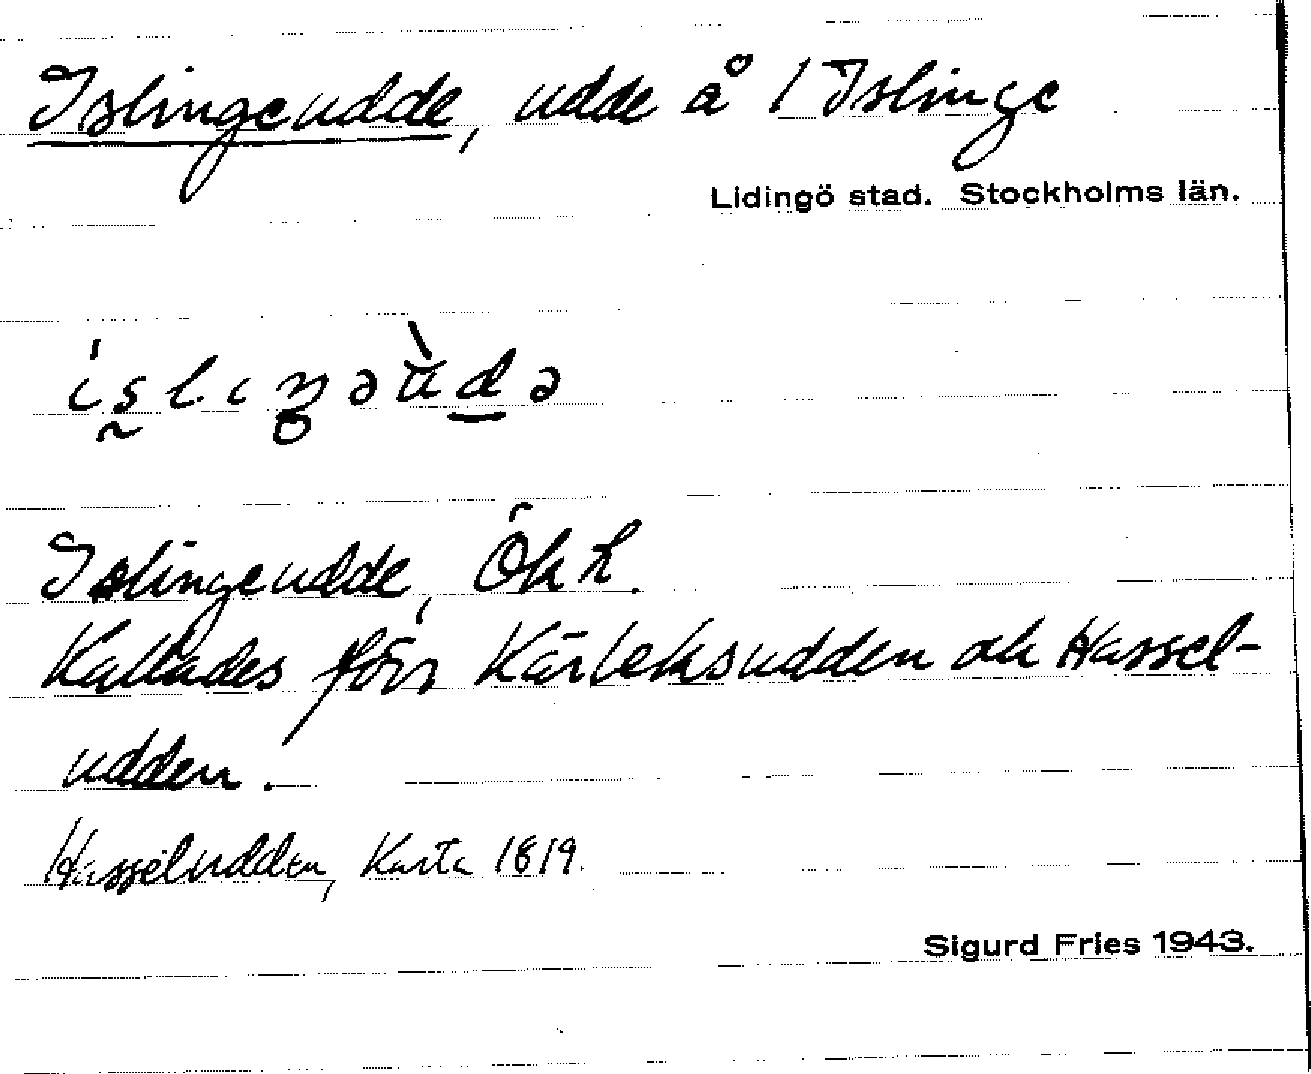 Islingeudde, udde å 1 Islinge
Lidingö stad. Stockholms län.
Islingeudde, Ökk.
Kallades förr Kärleksudden och Hassel-
udden.
Hasseludden, Karta 1819.
Sigurd Fries 1943.